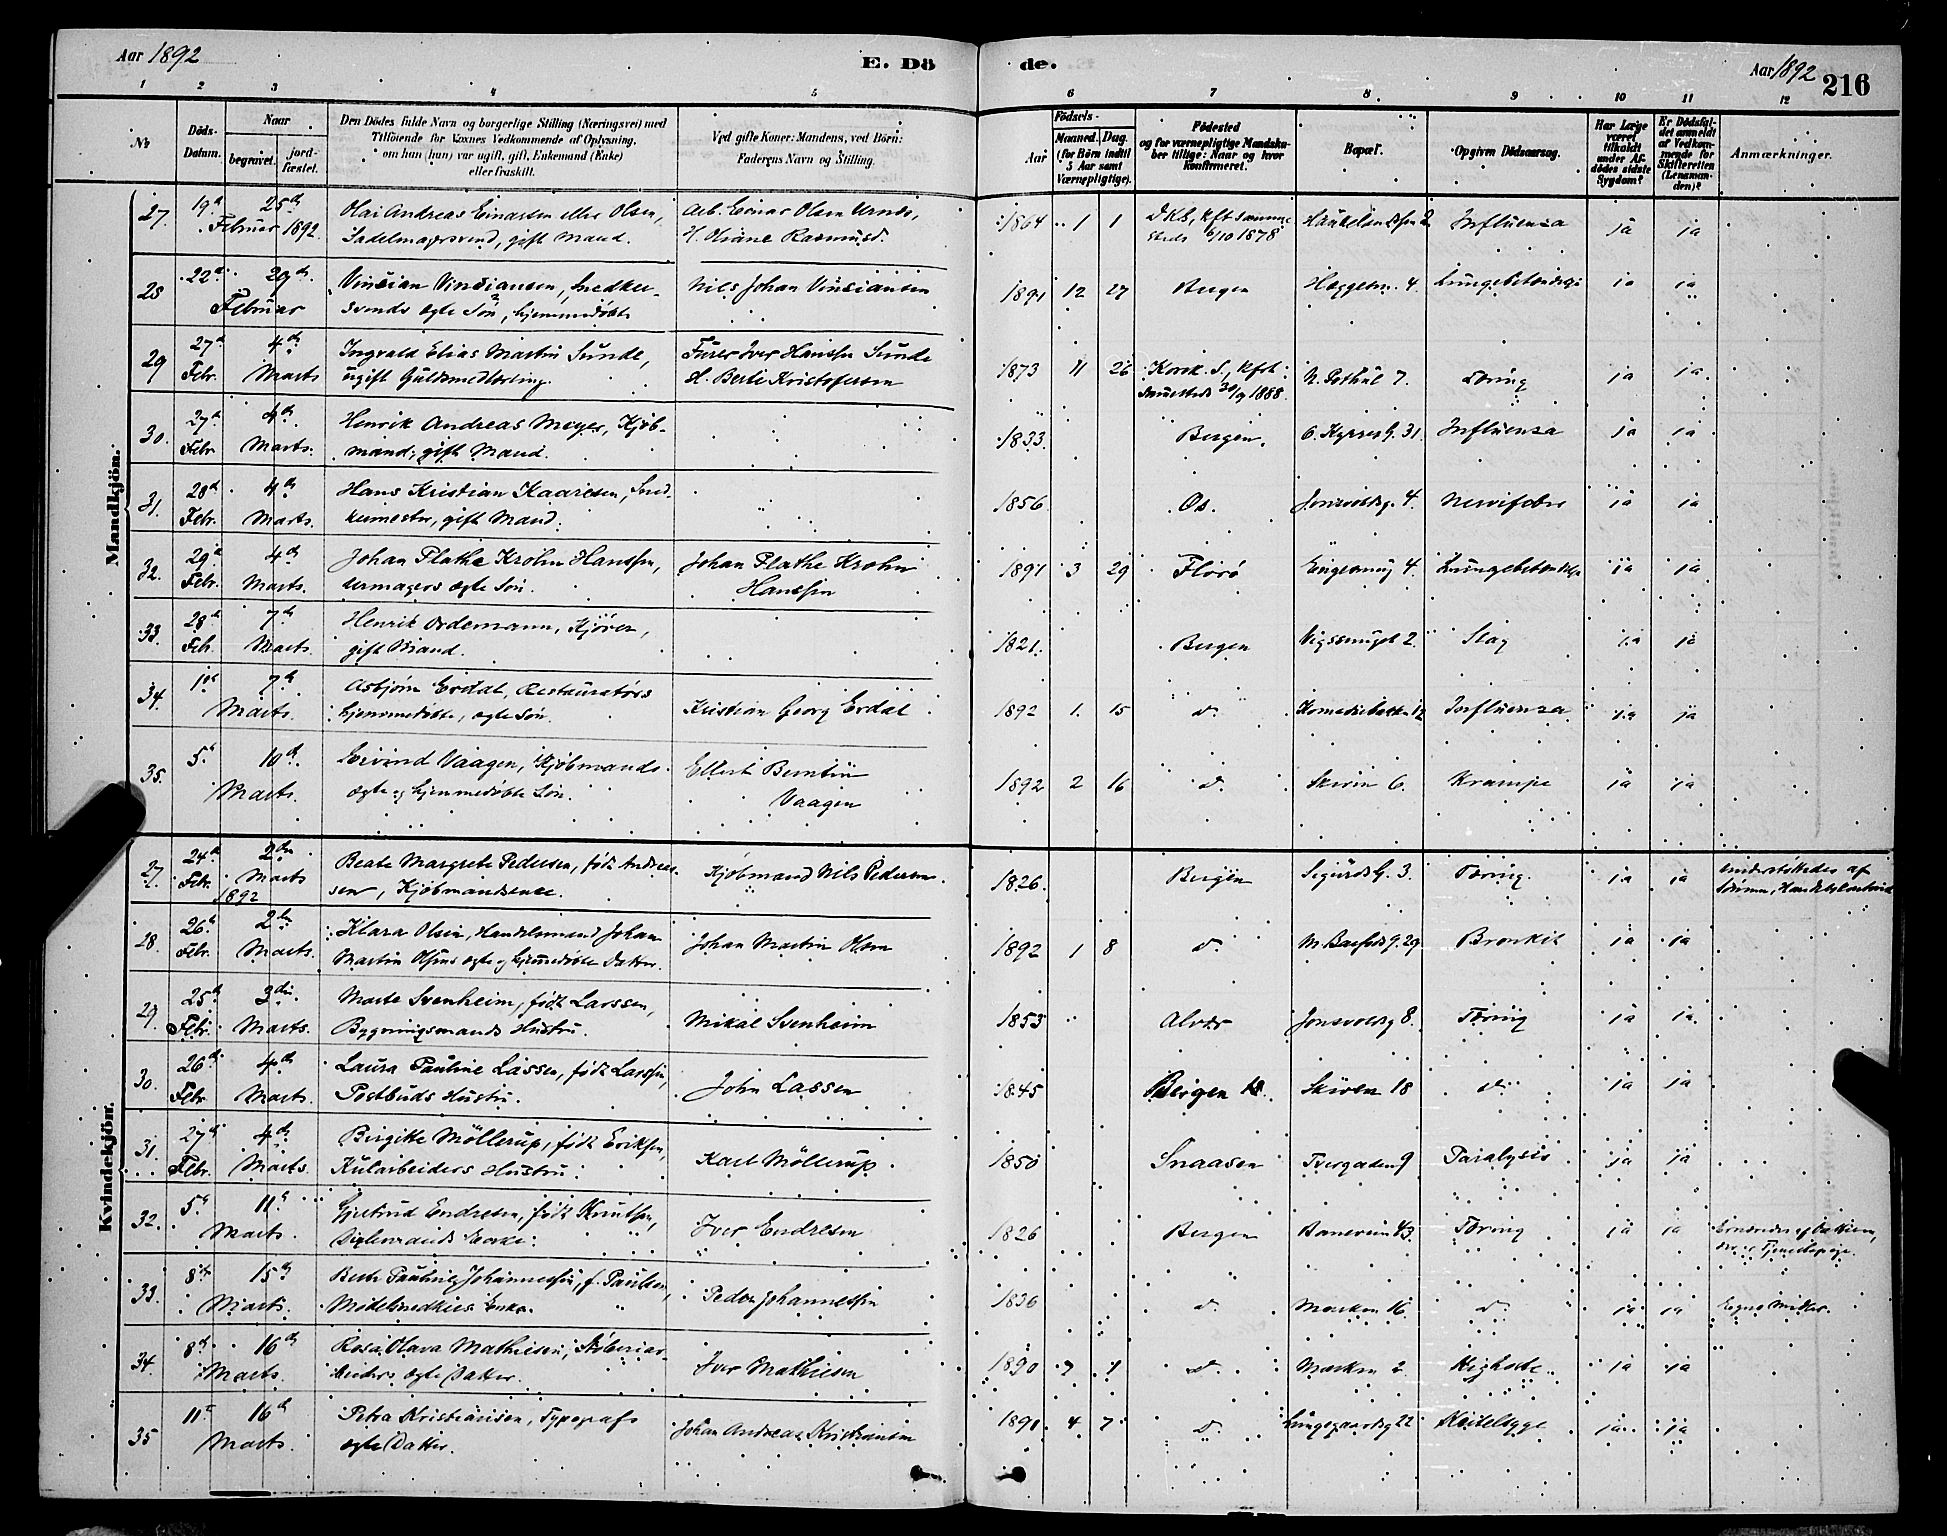 Aar 1892
E. Dö de.
Aar 1892
216
1 2 3 4 5 6 7 8 9 10 11 12
No
Döds-Datum.
Naar
begravet.
jordfæstet.
Den Dödes fulde Navn og borgerlige Stilling (Næringsvei) med
Tilföiende for Voxnes Vedkommende af Oplysning,
om han (hun) var ugift, gift, Enkemand (Enke)
eller fraskilt.
Ved gifte Koner: Mandens, ved Börn:
Faderens Navn og Stilling.
Födsels-
Aar
Maaned.
Dag.
(for Börn indtil
5 Aar samt
Værnepligtige).
Födested
og for værnepligtige Mandskaber
tillige: Naar og hvor
konfirmeret.
Bopæl.
Opgiven Dödsaarsag.
Har Læge
været
tilkaldt
under Afdödes
sidste
Sygdom?
Er Dödsfaldet
anmeldt
af Vedkommende
for
Skifteretten
(Lensmanden)?
Anmærkninger.
Mandkjön.
27. 19de 25de Olai Andreas Einarsen eller Olsen, Arb. Einar Olsen 1864 1 1 DKB, kft samme Influenza ja ja
Februar 1892. Sadelmagersvend, gift Mand. H. Oliane Rasmusd. steds 6/10 1878
28 22de 29de Vinsian Vinsiansen, Snedker- Nils Johan Vinsiansen 1891 12 27 Bergen Heggesm. 4. Lungebetændelse ja ja
Februar svends ægte Søn, hjemmedøbt
29 27de 4de Ingvald Elias Martin Sunde, Furer Iver Hanssen Sunde 1873 11 26 Korsk. S., kft. N. 7. Tæring ja ja
Febr. Marts ugift Guldsmedlærling. H. Berte Kristofersen sammesteds 30/9 1888.
30. 27de 4de Henrik Andreas Meyer, Kjöb- 1833. Bergen. O. Kyrres G. 31. Influenza ja ja
Febr Marts. mand, gift Mand.
31. 28de 4de Hans Kristian Kaaresen, Sned- 1856. Os. Jonsvoldsg. 4. Nervefeber ja ja
Febr. Marts. kermester, gift Mand.
32. 29de 4de Johan Flathe Krohn Hanssen, Johan Flathe Krohn 1891 3 29 Florø Engensmug 4. Lungebetændelse ja ja
Febr. Marts. ægte Søn. Hanssen
33. 28de 7de Henrik Ordemann, Kjører, 1821. Bergen 2. Slag ja ja
Feb. Marts. gift Mand.
34. 1ste 7de Asbjörn Erdal, Restauratørs Kristian Georg Erdal 1892 1. 15 do. Komediebakken 12 Influenza ja ja
Marts. hjemmedøbte, ægte Søn.
35. 5te 10de Eivind Vaagen, Kjöbmands Ellert Berntin 1892 2 16 do. Skiven 6. Krampe ja ja
Marts. ægte og hjemmedøbte Søn. Vaagen
Kvindekjön.
27. 24de 2den Beate Margrete Pedersen, født Andrea- Kjöbmand Nils Pedersen. 1826. Bergen Sigurds G. 3. Tæring. ja ja understøttedes af
Febr. Marts sen, Kjöbmandsenke. Sønnen,
1892
28. 26de 2den Klara Olsen, Handelsmand Johan Johan Martin Olsen 1892 1 8 do. 29 Bronkit ja ja
Febr. Marts. Martin Olsens ægte og hjemmedøbte Datter.
29. 25de 3die Marte Svenheim, født Larssen, Mikal Svenheim 1853 Alvær Jonsvoldsg 8. Tæring ja ja
Febr. Marts. Bygningsmands Hustru.
30. 26de 4de Laura Pauline Lassen, født Larssen, John Lassen 1845 Bergen Skiven 18 do. ja ja
Febr. Marts. Postbuds Hustru.
31. 27de 4de Birgitte Möllerup, født Eriksen, Karl Möllerup. 1850 Snaasen Tvergaden 9 Paralysis ja ja
Febr. Marts. Kularbeiders Hustru.
32. 5te 11te Gjertrud Endresen, født Knutsen, Iver Endresen 1826 Bergen Baneveien 43. Tæring ja ja Ernæredes af Datteren,
Marts. Tjenestepige.
33. 8de 15de Berte Pauline Johannessen, f. Paulsen, Peder Johannessen 1836 do. Marken 16 do. ja ja Egne Midler.
Marts. Mödelsnedkers Enke.
34. 8de 16de Rosa Olava Mathiesen, Støberiar- Iver Mathiesen 1890 7 1 do. Marken 2. Kighoste. ja ja
Marts. beiders ægte Datter.
35 11te 16de Petra Kristiansen, Typografs Johan Andreas Kristiansen 1891. 4 7 do. Lungegaardsg 22 ja ja
Marts. ægte Datter.